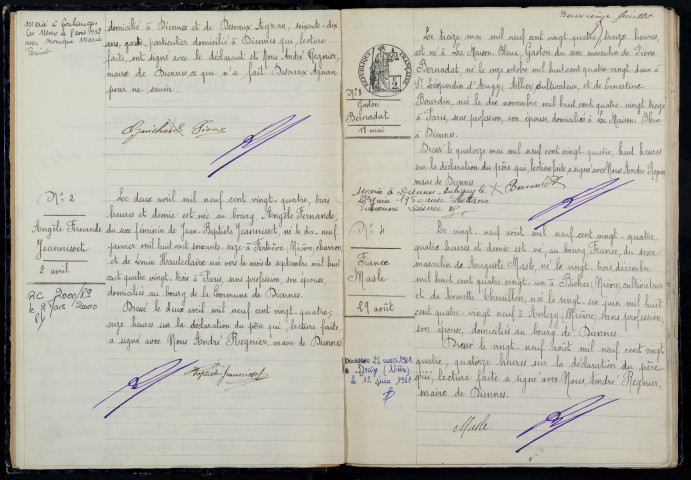 Marié à Coulanges
les Nevers le 8 mars 1952
avec Monique Marie
domicilié à Diennes et de Devaux Agnan, soixante-dix
ans, garde particulier domicilié à Diennes qui, lecture
faite, ont signé avec le déclarant et Nous André Regnier,
maire de Diennes, ce que n'a fait Devaux Agnan
pour ne savoir.
N° 2
Angèle Fernande
Jeannisset
2 avril
RC 2000/89
le 2 mars 2000
Le deux avril mil neuf cent vingt-quatre, trois
heures et demie est née au bourg, Angèle Fernande,
du sexe féminin de Jean-Baptiste Jeannisset, né le dix-neuf
janvier mil huit cent soixante-seize à Fertrève (Nièvre) charron
et de Louise Hauteclaire née vers le mois de septembre mil huit
cent quatre vingt, trois à Paris sans profession, son épouse,
domiciliés au bourg de la Commune de Diennes.
Dressé le deux avril mil neuf cent vingt-quatre,
seize heures sur la déclaration du père qui, lecture faite,
a signé avec Nous André Regnier, maire de Diennes
Baptiste Jeannisset
Deuxième feuillet
RÉPUBLIQUE FRANÇAISE
N° 3
Gaston
Bernadat
13 mai
Le treize mai mil neuf cent vingt-quatre, treize heures,
est né à La Maison Bleue, Gaston du sexe masculin de Pierre
Bernadat, né le onze octobre mil huit cent quatre-vingt-douze à
St Léopardin d'Augy, Allier, cultivateur, et de Ernestine
Bourdin, née le dix novembre mil huit cent quatre vingt treize
à Paris, sans profession, son épouse, domiciliés à La Maison Bleue
à Diennes.
Dressé le quatorze mai mil neuf cent vingt-quatre, huit heures
sur la déclaration du père qui, lecture faite a signé avec Nous André Regnier
maire de Diennes
Marié à Diennes-Aubigny le
1950 avec
Bernadat
N° 4
France
Masle
29 août
Le vingt-neuf août mil neuf cent vingt-quatre,
quatre heures et demie est né au bourg France, du sexe
masculin de Auguste Masle, né le vingt trois décembre
mil huit cent quatre vingt-un à Biches (Nièvre) cultivateur
et de Annette Chevillon, née le vingt-six juin mil huit
cent quatre-vingt neuf à Anlezy (Nièvre) sans profession,
son épouse, domiciliés au bourg de Diennes.
Dressé le vingt-neuf août mil neuf cent vingt
quatre, quatorze heures sur la déclaration du père
qui, lecture faite a signé avec Nous, André Regnier,
maire de Diennes.
25 mars 1981
à Decize (Nièvre)
le 12 juin 1981
Masle